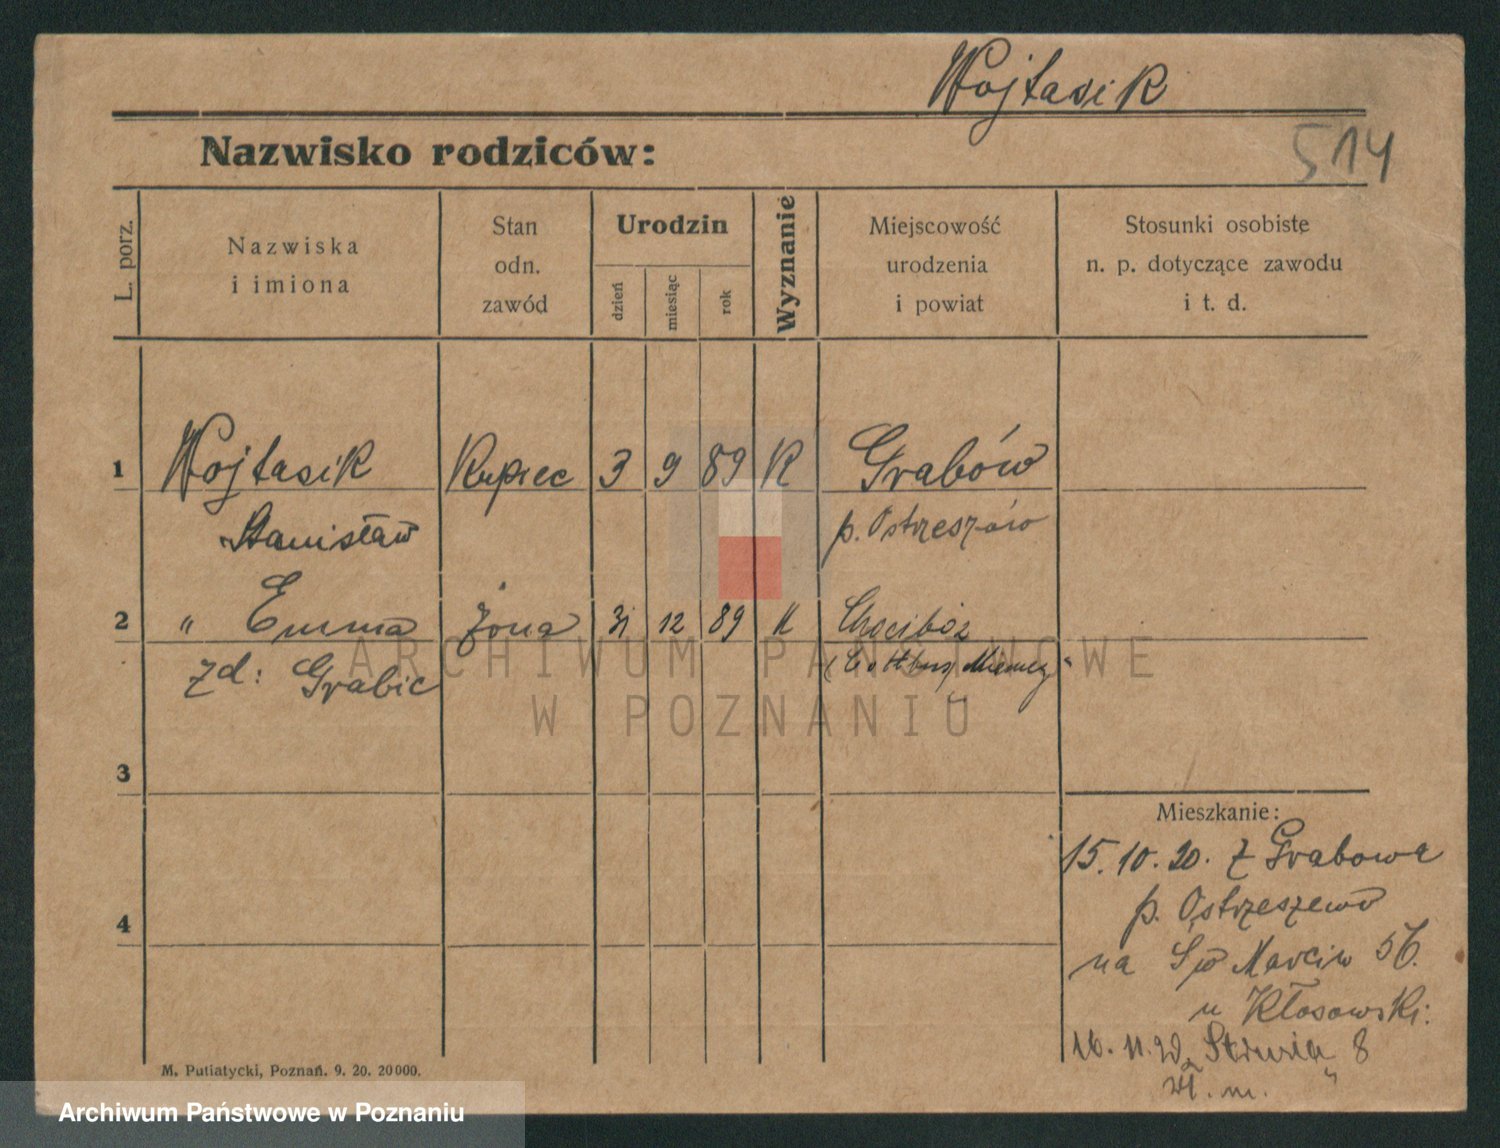 Wojtasik
514
Nazwisko rodziców:
L. porz.
Nazwiska
i imiona
Stan
odn.
zawód
Urodzin
dzień
miesiąc
rok
Wyznanie
Miejscowość
urodzenia
i powiat
Stosunki osobiste
n. p. dotyczące zawodu
i t. d.
1 Wojtasik Kupiec 3 9 89 K Grabów
Stanisław p. Ostrzeszów
2 " Emma żona 31 12 89 K Chocibóż
zd: Grabic (Cottbus Niemcy)
ARCHIWUM PAŃSTWOWE
W POZNANIU
3
4
Mieszkanie:
15.10.20. z Grabowa
p. Ostrzeszewo
na Św Marcin 56.
u Kłosowski:
16.11.20 8
M. Putiatycki, Poznań. 9. 20. 20000.
Archiwum Państwowe w Poznaniu